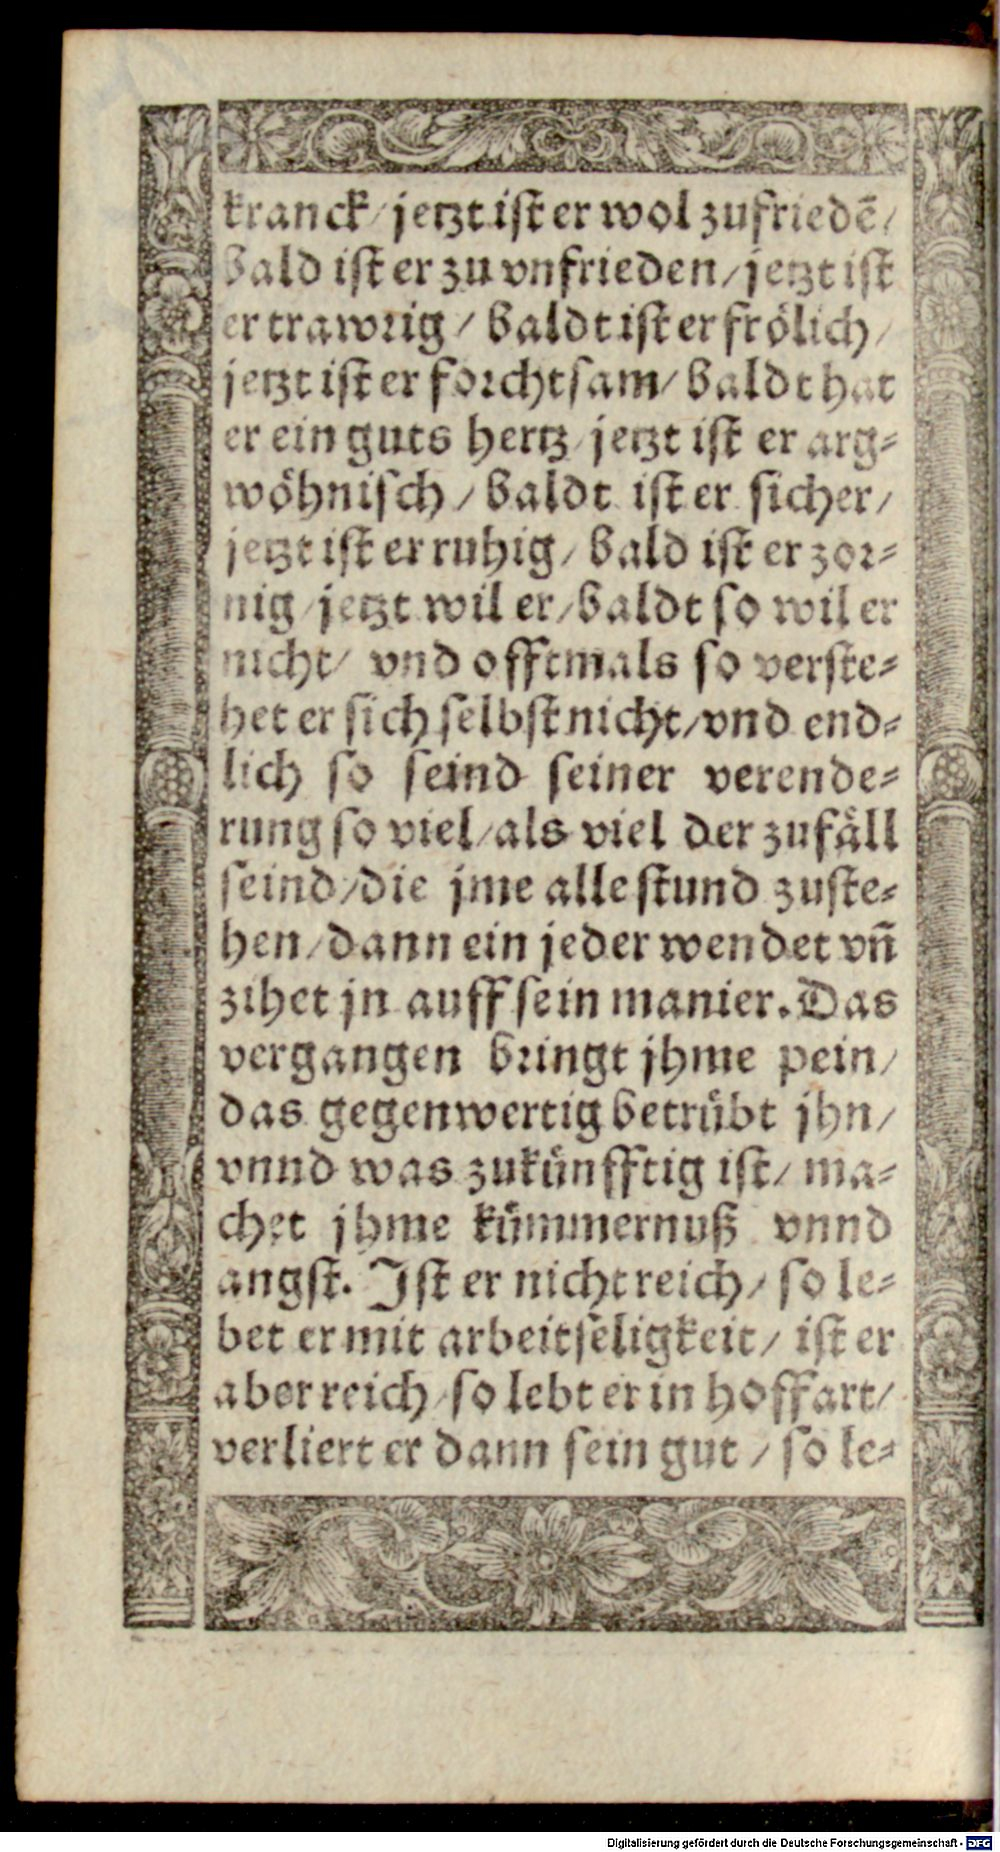 kranck/ jetzt ist er wol zufriedē/
bald ist er zu vnfrieden/ jetzt ist
er trawrig / baldt ist er frölich/
jetzt ist er forchtsam/ baldt hat
er ein guts hertz/ jetzt ist er arg-
wöhnisch / baldt ist er sicher/
jetzt ist er ruhig/ bald ist er zor-
nig/ jetzt wil er/ baldt so wil er
nicht/ vnd offtmals so verste-
het er sich selbst nicht/ vnd end-
lich so seind seiner verende-
rung so viel/ als viel der zufäll
seind/ die jme alle stund zuste-
hen/ dann ein jeder wendet vñ
zihet jn auff sein manier. Das
vergangen bringt jhme pein/
das gegenwertig betrübt jhn/
vnnd was zukünfftig ist/ ma-
chet jhme kümmernuß vnnd
angst. Ist er nicht reich/ so le-
bet er mit arbeitseligkeit/ ist er
aber reich/ so lebt er in hoffart/
verliert er dann sein gut / so le-
Digitalisierung gefördert durch die Deutsche Forschungsgemeinschaft - DFG